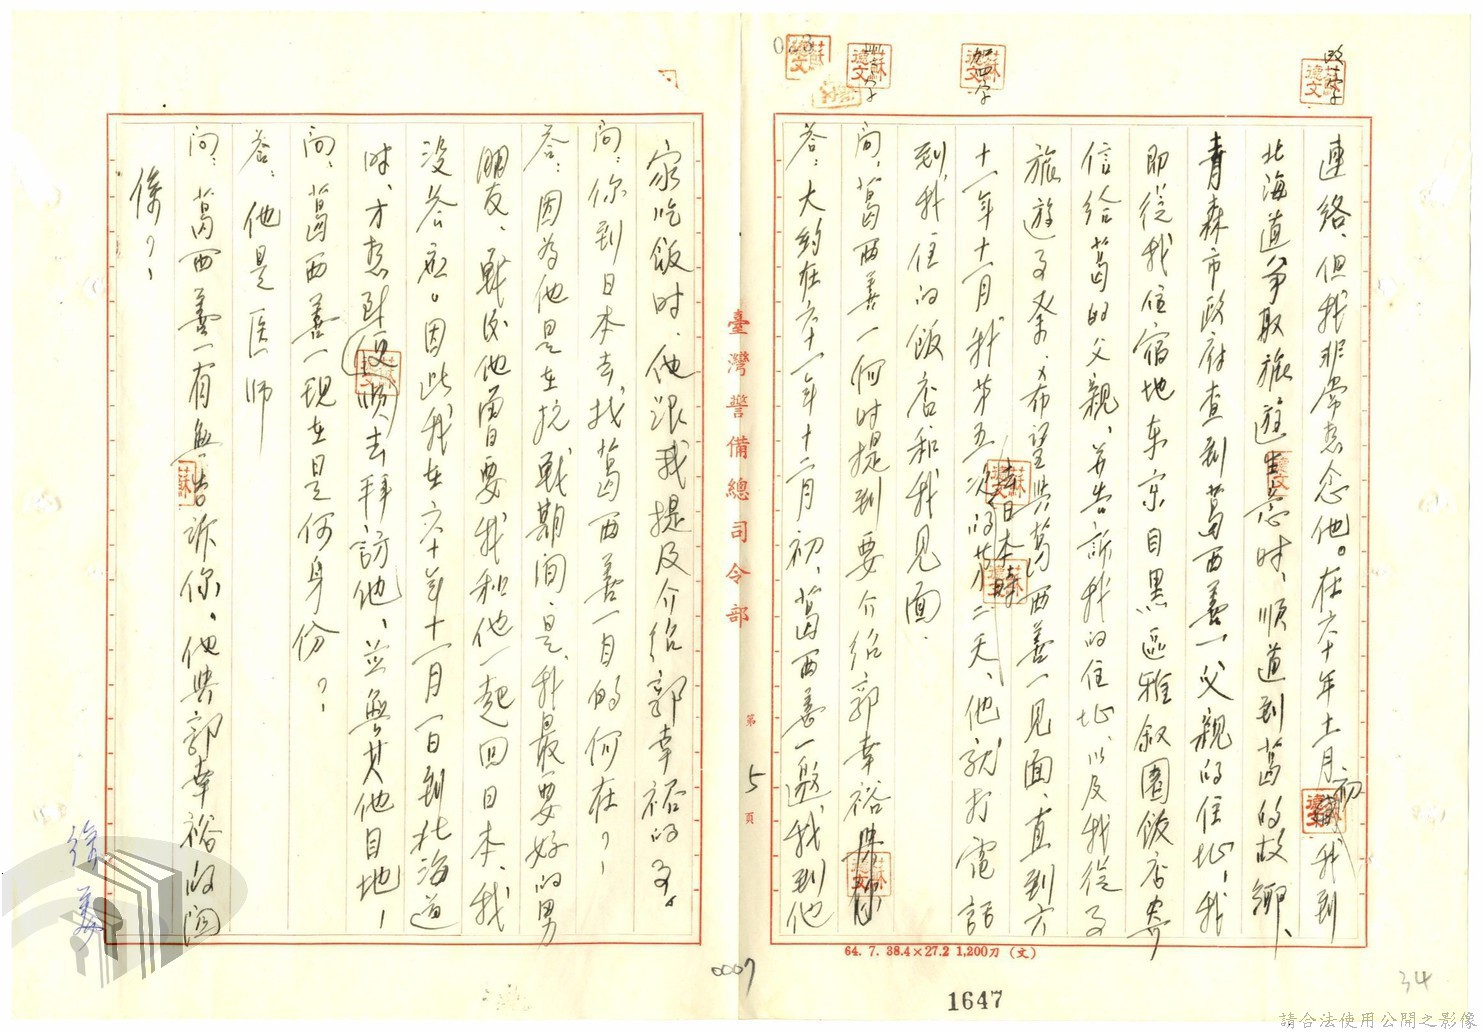 改壹字
加四字
連絡、但我非常想念他。在六十年十一月初我到
北海道爭取旅遊生意時、順道到葛的故鄉、
青森市政府查到葛西善一父親的住址、我
即從我住宿地东京目黑區雅叙園飯店寄
信給葛的父親、并告訴我的住址以及我從了
旅遊了業、希望與葛西善一見面、直到六
十一年十一月我第五次到日本時的第二天、他就打電話
到我住的飯店和我見面.
问：葛西善一何时提到要介紹郭幸裕
答：大約在六十一年十二月初、葛西善一邀我到他
臺灣警備總司令部
第5頁
家吃飯时、他跟我提及介紹郭幸裕的了。
问：你到日本去找葛西善一目的何在？
答：因為他是在抗戰期间、是我最要好的男
朋友、戰後他曾要我和他一起回日本、我
沒答应。因此我在六十年十一月一日到北海道
时、才想到順便去拜訪他、並無其他目地、
问：葛西善一現在是何身份？
答：他是医师
问：葛西善一有無告訴你、他與郭幸裕的関
係？
徐美
64. 7. 38.4×27.2 1,200刀 (文)
0007
1647
34
請合法使用公開之影像